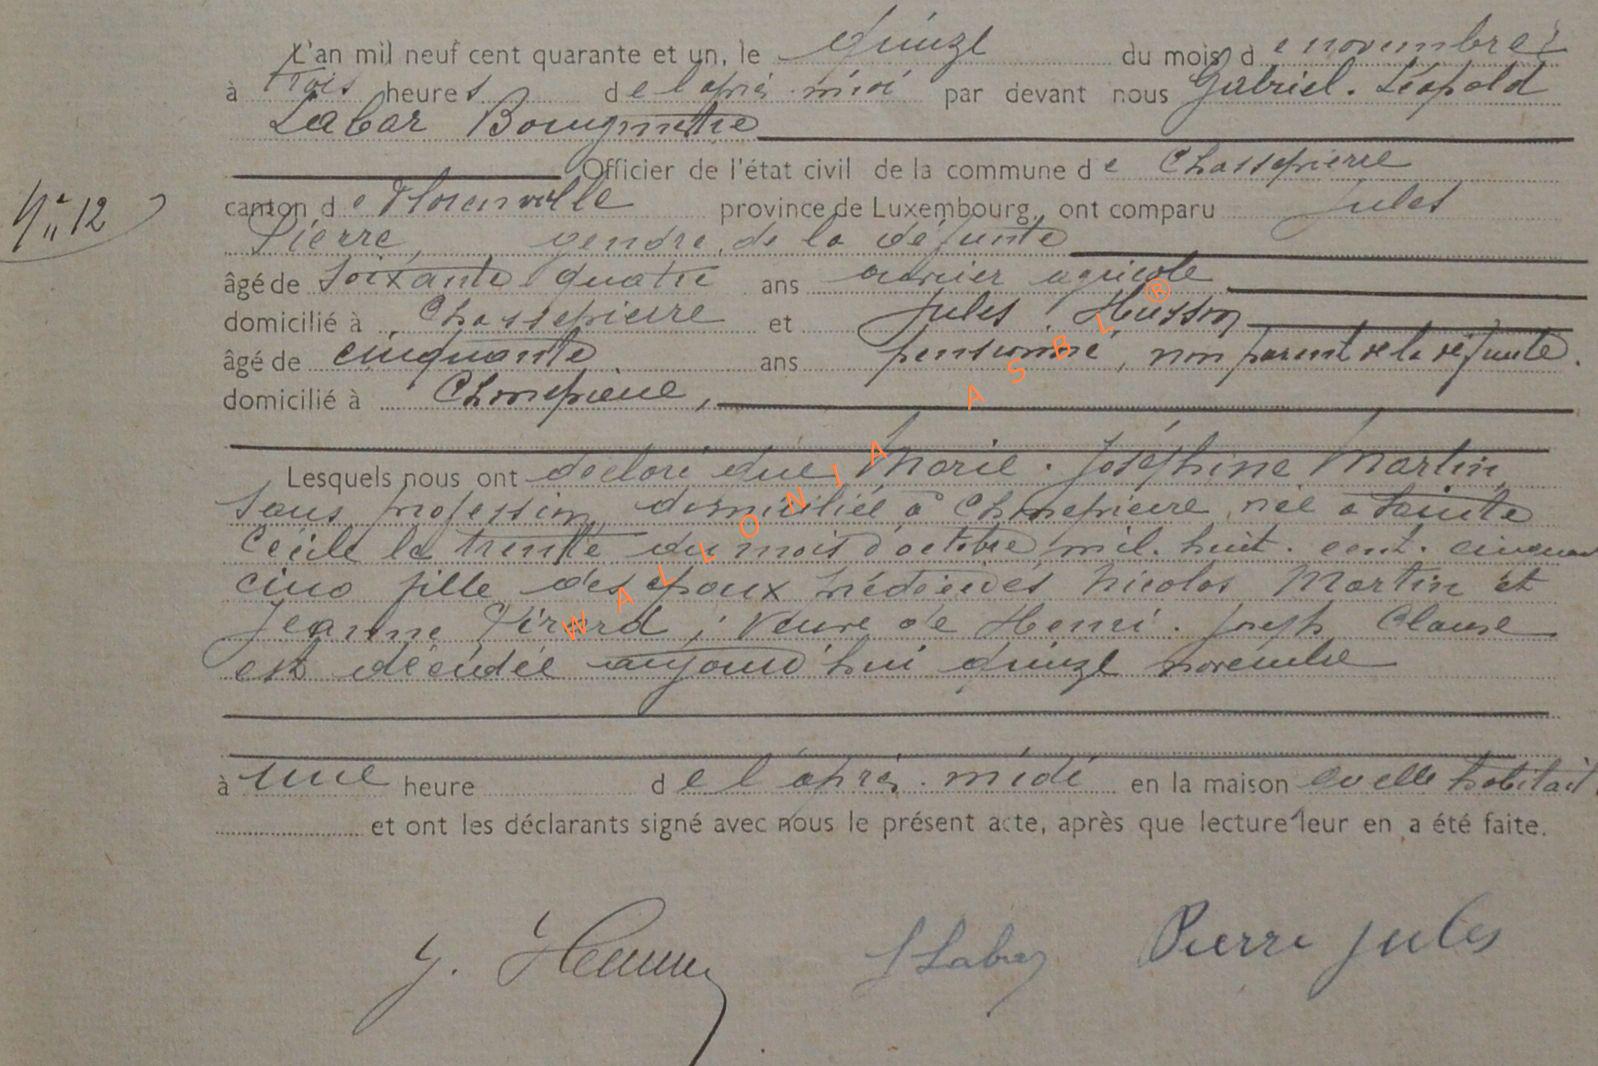 L'an mil neuf cent quarante et un, le quinze du mois de novembre,
à trois heures de l'après-midi par devant nous Gabriel. Léopold
Labar Bourgmestre
Officier de l'état civil de la commune de Chassepierre
N° 12
canton de Florenville province de Luxembourg, ont comparu Jules
Pierre, gendre de la défunte
âgé de soixante quatre ans ouvrier agricole
domicilié à Chassepierre et Jules Husson
âgé de cinquante ans pensionné, non parent de la défunte.
domicilié à Chassepierre,
Lesquels nous ont déclaré que Marie. Joséphine Martin,
sans profession, domiciliée à Chassepierre, née à Sainte
Cécile le trente du mois d'octobre mil. huit. cent. cinquante
cinq fille des époux prédécédés Nicolas Martin et
Jeanne Pirard ; Veuve de Henri. Joseph Clause
est décédée aujourd'hui quinze novembre
à une heure de l'après-midi en la maison qu'elle habitait
et ont les déclarants signé avec nous le présent acte, après que lecture leur en a été faite.
J. Pierre Jules
WALLONIA ASBL ®